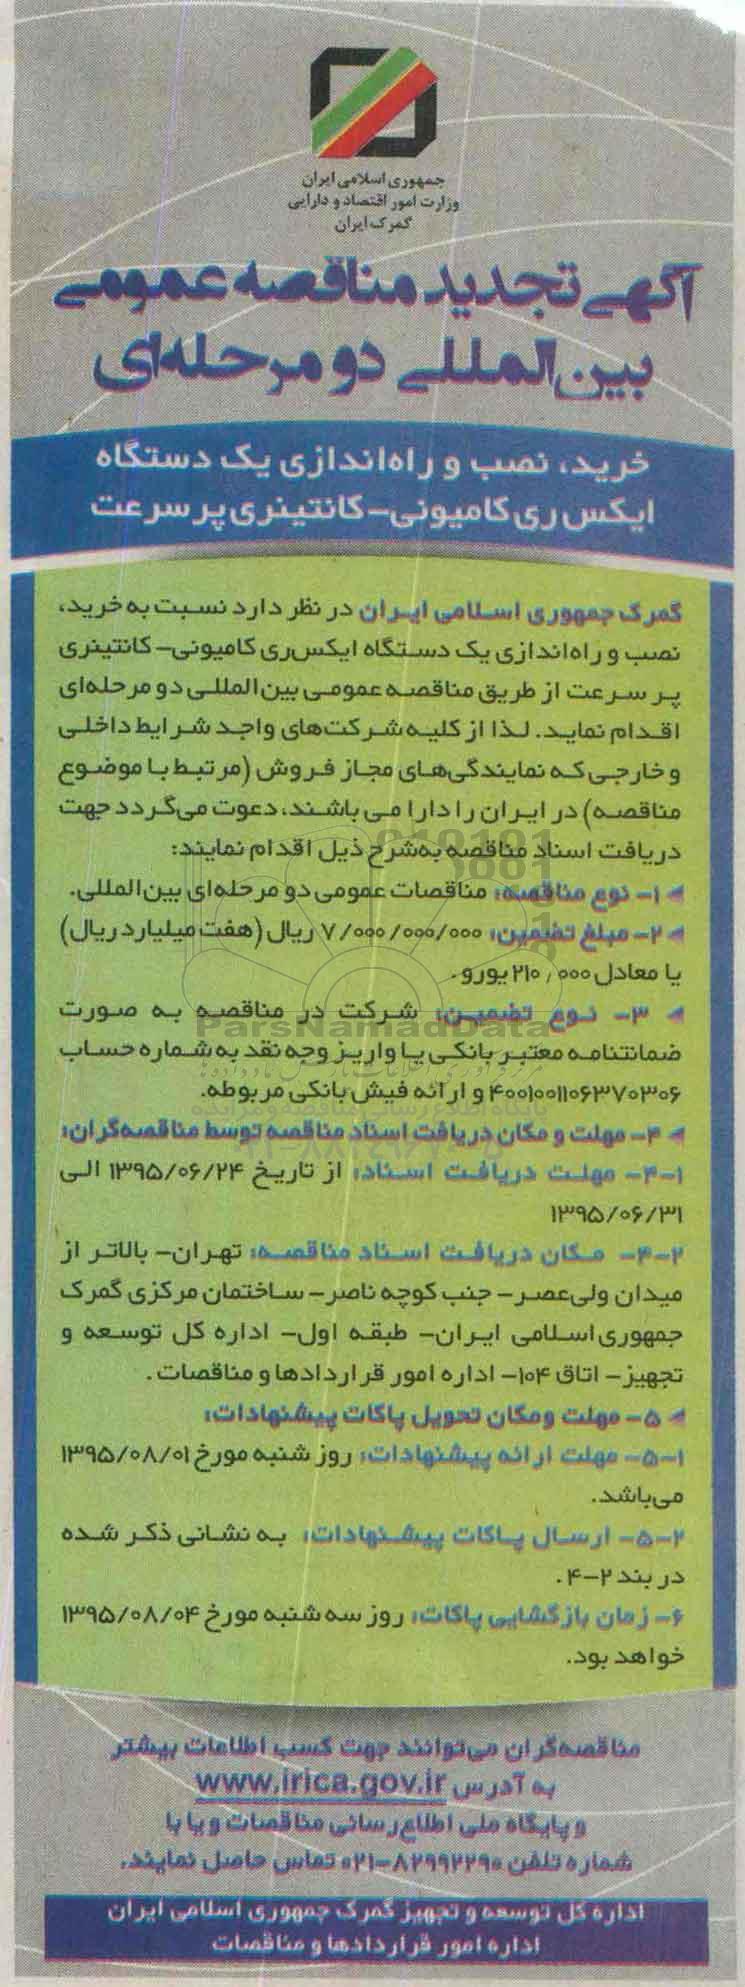 جمهوری اسلامی ایران
وزارت امور اقتصاد و دارایی
گمرک ایران
آگهی تجدید مناقصه عمومی
بین‌المللی دو مرحله‌ای
خرید، نصب و راه‌اندازی یک دستگاه
ایکس ری کامیونی-کانتینری پر سرعت
گمرک جمهوری اسلامی ایران در نظر دارد نسبت به خرید،
نصب و راه‌اندازی یک دستگاه ایکس‌ری کامیونی-کانتینری
پر سرعت از طریق مناقصه عمومی بین‌المللی دو مرحله‌ای
اقدام نماید. لذا از کلیه شرکت‌های واجد شرایط داخلی
و خارجی که نمایندگی‌های مجاز فروش (مرتبط با موضوع
مناقصه) در ایران را دارا می باشند، دعوت می‌گردد جهت
دریافت اسناد مناقصه به‌شرح ذیل اقدام نمایند:
۱- نوع مناقصه: مناقصات عمومی دو مرحله‌ای بین‌المللی.
۲- مبلغ تضمین: ۷/۰۰۰/۰۰۰/۰۰۰ ریال (هفت میلیارد ریال)
یا معادل ۲۱۰,۰۰۰ یورو.
۳- نوع تضمین: شرکت در مناقصه به صورت
ضمانتنامه معتبر بانکی یا واریز وجه نقد به شماره حساب
۴۰۰۱۰۰۱۱۰۶۳۷۰۳۰۶ و ارائه فیش بانکی مربوطه.
۴- مهلت و مکان دریافت اسناد مناقصه توسط مناقصه‌گران:
۴-۱- مهلت دریافت اسناد: از تاریخ ۱۳۹۵/۰۶/۲۴ الی
۱۳۹۵/۰۶/۳۱
۴-۲- مکان دریافت اسناد مناقصه: تهران- بالاتر از
میدان ولی‌عصر- جنب کوچه ناصر- ساختمان مرکزی گمرک
جمهوری اسلامی ایران- طبقه اول- اداره کل توسعه و
تجهیز- اتاق ۱۰۴- اداره امور قراردادها و مناقصات.
۵- مهلت ومکان تحویل پاکات پیشنهادات:
۵-۱- مهلت ارائه پیشنهادات: روز شنبه مورخ ۱۳۹۵/۰۸/۰۱
می‌باشد.
۵-۲- ارسال پاکات پیشنهادات: به نشانی ذکر شده
در بند ۲-۴.
۶- زمان بازگشایی پاکات: روز سه شنبه مورخ ۱۳۹۵/۰۸/۰۴
خواهد بود.
مناقصه‌گران می‌توانند جهت کسب اطلاعات بیشتر
به آدرس www.irica.gov.ir
و پایگاه ملی اطلاع‌رسانی مناقصات و یا با
شماره تلفن ۸۲۹۹۲۲۹۰-۰۲۱ تماس حاصل نمایند.
اداره کل توسعه و تجهیز گمرک جمهوری اسلامی ایران
اداره امور قراردادها و مناقصات
ParsNamadData